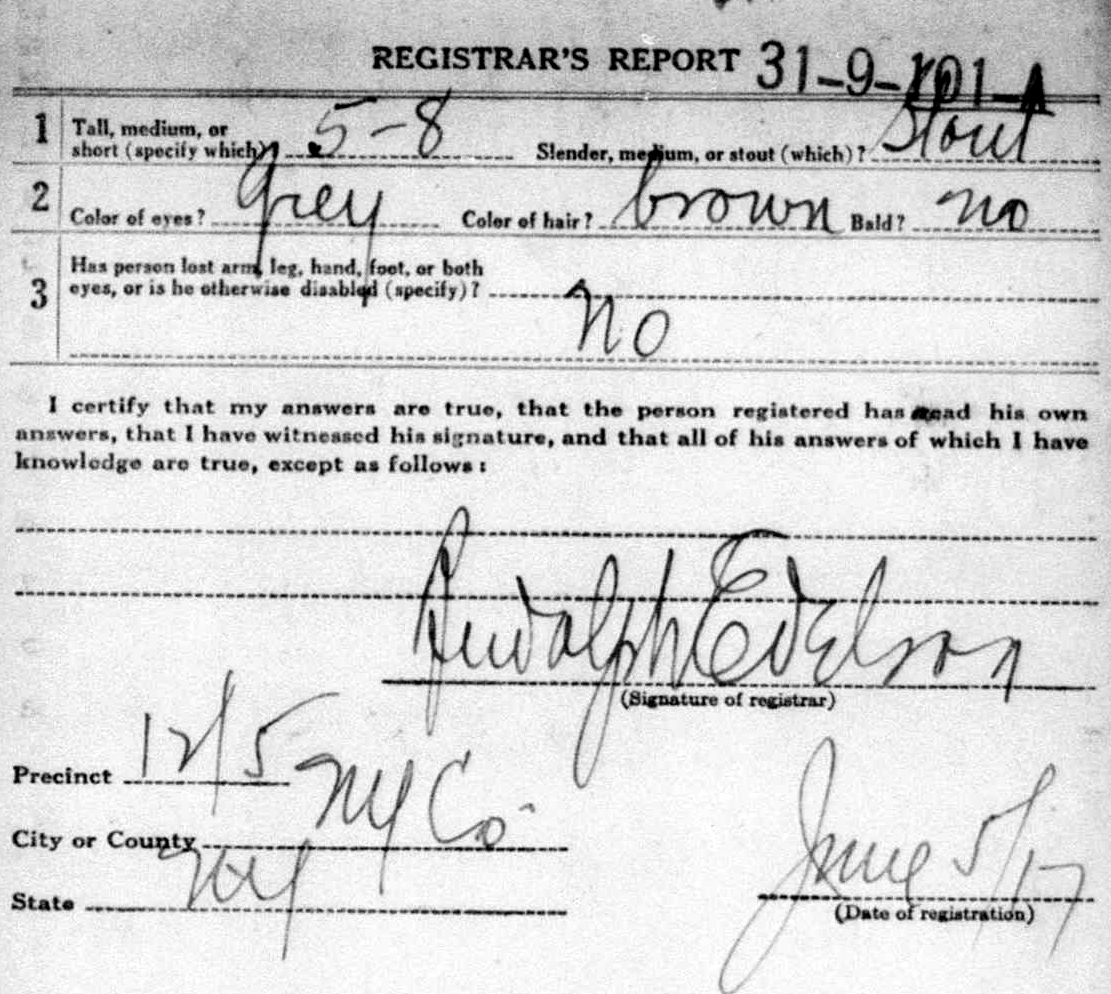 REGISTRAR'S REPORT 31-9-101-A
1 Tall, medium, or
short (specify which) 5-8 Slender, medium, or stout (which)? Stout
2 Color of eyes? grey Color of hair? brown Bald? no
3 Has person lost arm, leg, hand, foot, or both
eyes, or is he otherwise disabled (specify)?
no
I certify that my answers are true, that the person registered has read his own
answers, that I have witnessed his signature, and that all of his answers of which I have
knowledge are true, except as follows:
Rudolph Edelson
(Signature of registrar)
Precinct 12/5
City or County NY Co
State NY
June 5/17
(Date of registration)